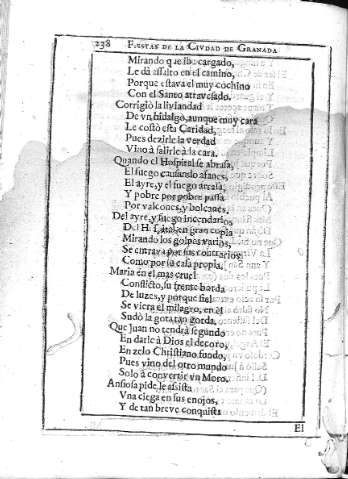 238 FIESTAS DE LA CIVDAD DE GRANADA
Mirando que iba cargado,
Le dà assalto en el camino,
Porque estava el muy cochino
Con el Santo atravesado.
Corrigiò la liviandad
De vn hidalgo, aunque muy cara
Le costò esta Caridad,
Pues dezirle la verdad
Vino à salirle à la cara.
Quando el Hospital se abrasa,
El fuego causando afanes,
El ayre, y el fuego
Y pobre por pobre passa
Por valcones, y bolcanes.
Del ayre, y fuego incendarios
Del en gran copia
Mirando los golpes varios,
Se entrava por sus contrarios
Como por su casa propia.
Maria en el mas cruel
Conflicto, su frente borda
De luzes, y porque fiel
Se viera el milagro, en èl
Sudò la gota tan gorda.
Que Juan no tendrà segundo
En darle à Dios el decoro,
En zelo Christiano fundo,
Pues vino del otro mundo
Solo à convertir vn Moro.
Ansiosa pide le assista
Vna ciega en sus enojos,
Y de tan breve conquista
El